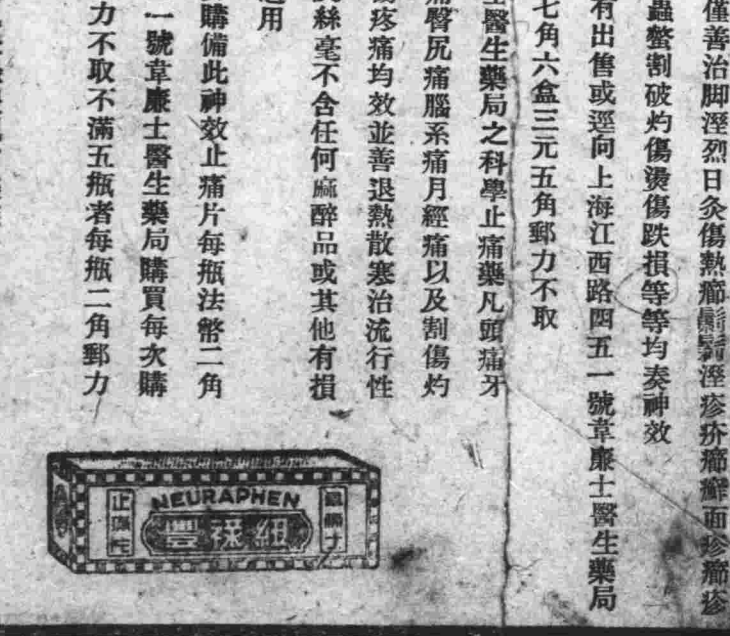 僅善治脚溼烈日灸傷熱癤鬎鬁溼疹疥癤癬面疹癤疹
蟲螫割破灼傷燙傷跌損等等均奏神效
有出售或逕向上海江西路四五一號韋廉士醫生藥局
七角六盒三元五角郵力不取
士醫生藥局之科學止痛藥凡頭痛牙
痛臀尻痛腦系痛月經痛以及割傷灼
傷疼痛均效並善退熱散寒治流行性
絲毫不含任何麻醉品或其他有損
適用
購備此神效止痛片每瓶法幣二角
一號韋廉士醫生藥局購買每次購
力不取不滿五瓶者每瓶二角郵力
NEURAPHEN
紐祿豐
止痛片
韋廉士